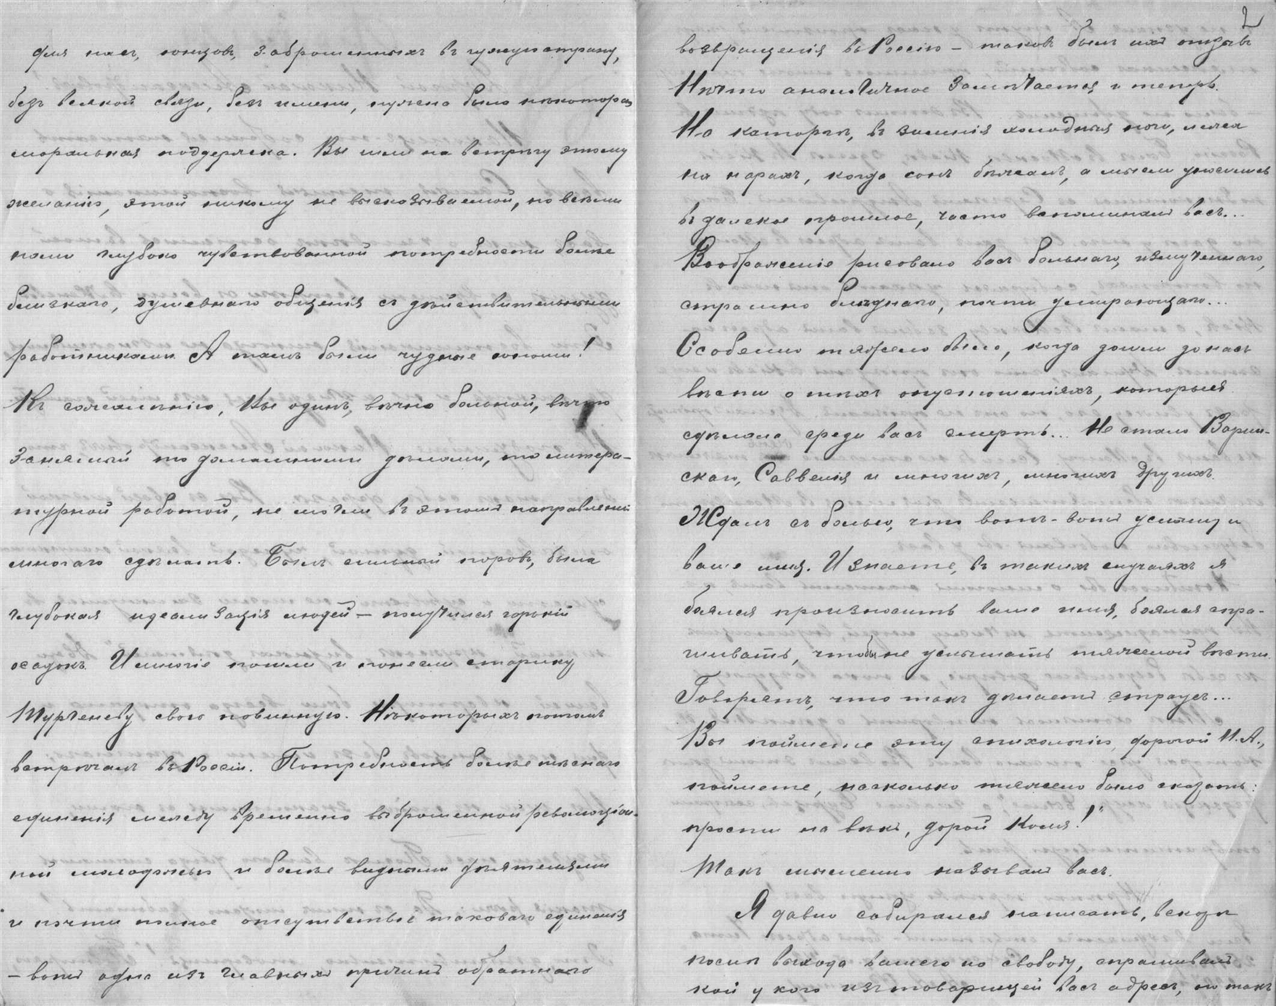 для насъ, юнцовъ, заброшенныхъ въ чужую страну,
безъ всякой связи, безъ имени, нужна была нѣкоторая
моральная поддержка. Вы шли на встрѣчу этому
желанію, этой никому не высказываемой, но всѣми
нами глубоко чувствованной потребности болѣе
близкаго, душевнаго общенія съ дѣйствительными
работниками. А тамъ были чудные юноши!
Къ сожалѣнію, Вы одинъ, вѣчно больной, вѣчно
занятый то домашними дѣлами, то литера-
турной работой, не могли въ этомъ направленіи
многаго сдѣлать. Былъ сильный порывъ, была
глубокая идеализація людей — получился горькій
осадокъ. И многіе пошли и понесли старику
Тургеневу свою повинную. Нѣкоторыхъ потомъ
встрѣчалъ въ Россіи. Потребность болѣе тѣснаго
единенія между временно выброшенной революціон-
ной молодежью и болѣе видными дѣятелями
и почти полное отсутствіе таковаго единенія
— вотъ одна изъ главныхъ причинъ обратнаго
2
возвращенія въ Россію — таковъ былъ ихъ отзывъ
Нѣчто аналогичное замѣчается и теперь.
На каторгѣ, въ зимнія холодныя ночи, лежа
на нарахъ, когда сонъ бѣжалъ, а мысли уносились
въ далекое прошлое, часто вспоминалъ васъ...
Воображеніе рисовало васъ больнаго, измученнаго,
страшно блѣднаго, почти умирающаго...
Особенно тяжело было, когда дошли до насъ
вѣсти о тѣхъ опустошеніяхъ, которыя
сдѣлала среди васъ смерть... Не стало Варын-
скаго, Саввелія и многихъ, многихъ другихъ.
Ждалъ съ болью, что вотъ-вотъ услышу и
ваше имя. И знаете, въ такихъ случаяхъ я
боялся произносить ваше имя, боялся спра-
шивать, чтобы не услышать тяжелой вѣсти.
Говорятъ, что такъ дѣлаетъ страусъ...
Вы поймете эту психологію, дорогой Н. А.,
поймете, насколько тяжело было сказать:
прости на вѣкъ, дорой Коля!"
Такъ мысленно называлъ васъ.
Я давно собирался написать, вскорѣ
послѣ выхода вашего на свободу, спрашивалъ
кой у кого изъ товарищей васъ адресъ, но такъ